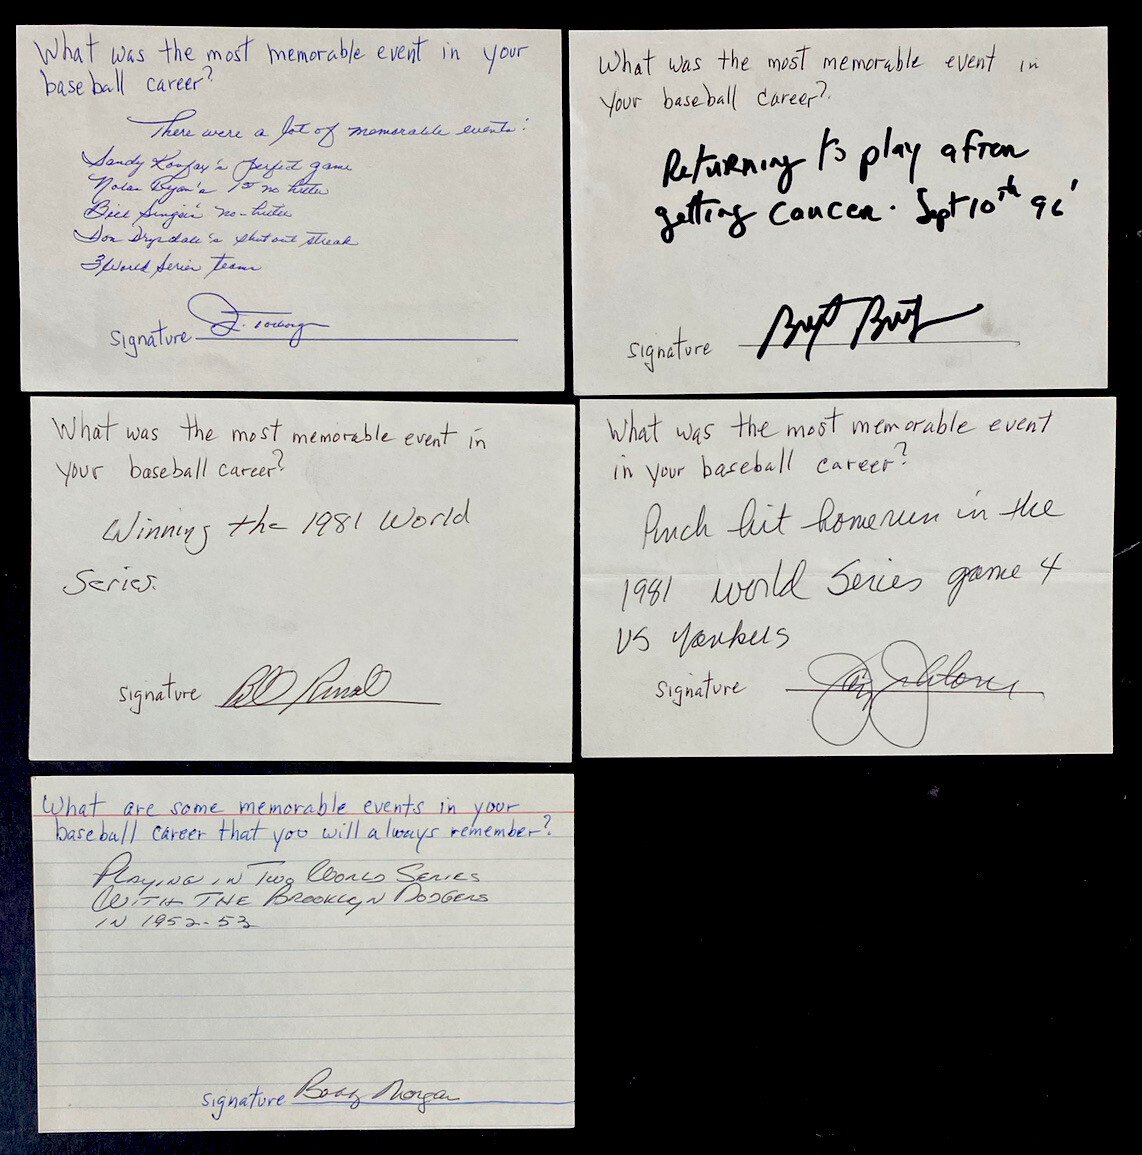 What was the most memorable event in your
baseball career?
There were a lot of memorable events:
Sandy Koufax's perfect game
Nolan Ryan's 1st no hitter
Bill Singer's no-hitter
Don Drysdale's shut out streak
3 World Series teams
signature J. Torborg
What was the most memorable event in
your baseball career?
Returning to play after
getting cancer. Sept 10th 96'
signature Brett Butler
What was the most memorable event in
your baseball career?
Winning the 1981 World
Series.
signature Bill Russell
What was the most memorable event
in your baseball career?
Pinch hit homerun in the
1981 world Series game 4
vs Yankees
signature Jay Johnstone
What are some memorable events in your
baseball career that you will always remember?
Playing in Two World Series
With The Brooklyn Dodgers
in 1952-53
signature Bobby Morgan